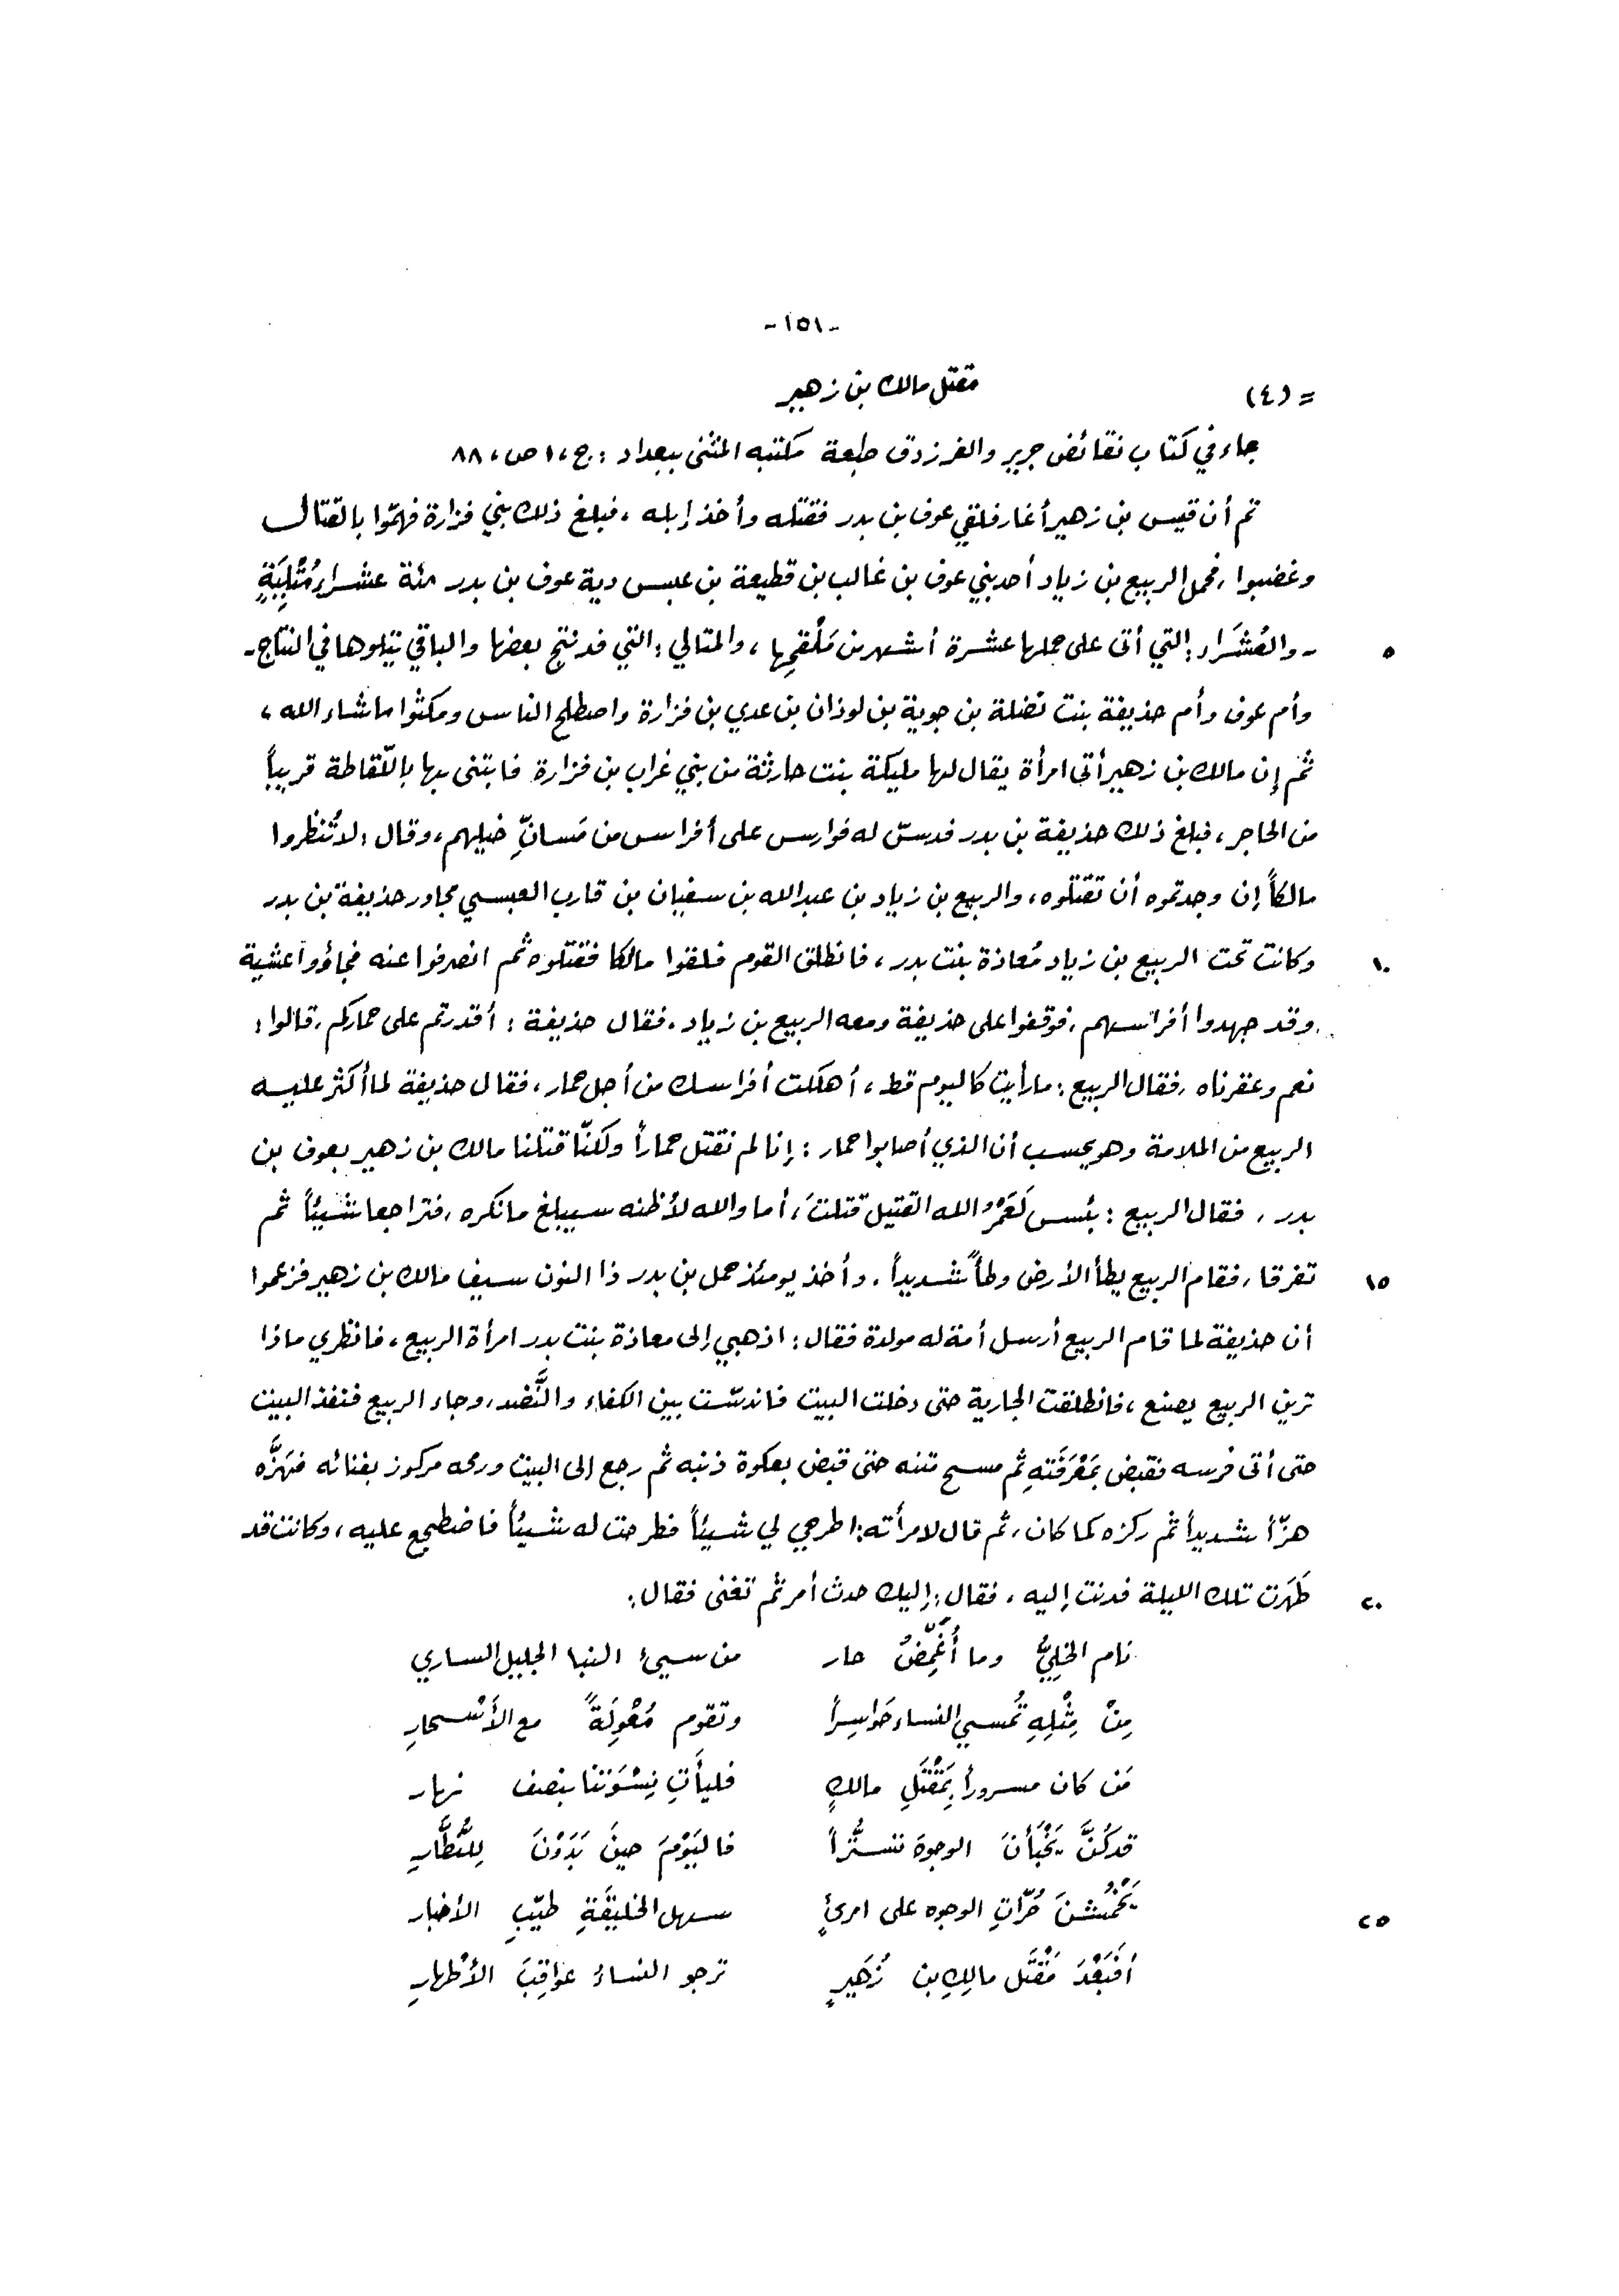 -١٥١-
= (٤) مقتل مالك بن زهير
جاء في كتاب نقائض جرير والفرزدق طبعة مكتبه المثنى ببغداد : ج ، ١ ص ، ٨٨
ثم أن قيس بن زهير أغار فلقي عوف بن بدر فقتله وأخذ إبله ، فبلغ ذلك بني فزارة فهمّوا بالقتال
وغضبوا ، فحمل الربيع بن زياد أحد بني عوف بن غالب بن قطيعة بن عبس دية عوف بن بدر مئة عشراء مُتْلِيَةٍ
٥ - والعُشَرَاء : التي أتى على حملها عشرة أشهر من مَلْقحِها ، والمتالي : التي قد نتج بعضها والباقي يتلوها في النتاج -
وأم عوف وأم حذيفة بنت نضلة بن جوية بن لوذان بن عدي بن فزارة واصطلح الناس ومكثوا ما شاء الله ،
ثم إن مالك بن زهير أتى امرأة يقال لها مليكة بنت حارثة من بني غراب بن فزارة فابتنى بها باللّقاطة قريباً
من الحاجر ، فبلغ ذلك حذيفة بن بدر فدسّ له فوارس على أفراس من مَسانِّ خيلهم ، وقال : لا تُنظروا
مالكاً إن وجدتموه أن تقتلوه ، والربيع بن زياد بن عبد الله بن سفيان بن قارب العبسي مجاور حذيفة بن بدر
١٠ وكانت تحت الربيع بن زياد مُعاذة بنت بدر ، فانطلق القوم فلقوا مالكا فقتلوه ثم انصرفوا عنه فجاؤوا عشية
وقد جهدوا أفراسهم ، فوقفوا على حذيفة ومعه الربيع بن زياد . فقال حذيفة : أقدرتم على حماركم ، قالوا :
نعم وعقرناه ، فقال الربيع : ما رأيت كاليوم قط ، أهلكت أفراسك من أجل حمار ، فقال حذيفة لما أكثر عليه
الربيع من الملامة وهو يحسب أن الذي أصابوا حمار : إنا لم نقتل حماراً ولكنّا قتلنا مالك بن زهير بعوف بن
بدر ، فقال الربيع : بئس لَعَمْرُ الله القتيل قتلتَ ، أما والله لأظنه سيبلغ ما نكره ، فتراجعا شيئاً ثم
١٥ تفرقا ، فقام الربيع يطأ الأرض وطأً شديداً . وأخذ يومئذ حمل بن بدر ذا النون سيف مالك بن زهير فزعموا
أن حذيفة لما قام الربيع أرسل أمة له مولدة فقال : اذهبي إلى معاذة بنت بدر امرأة الربيع ، فانظري ماذا
ترين الربيع يصنع ، فانطلقت الجارية حتى دخلت البيت فاندسّت بين الكفاء والنَّضد ، وجاء الربيع فنفذ البيت
حتى أتى فرسه فقبض بمَعْرَفَتهِ ثم مسح متنه حتى قبض بعكوة ذنبه ثم رجع إلى البيت ورمحه مركوز بفنائه فهَزَّه
هزّاً شديداً ثم ركزه كما كان ، ثم قال لامرأته : اطرحي لي شيئاً فطرحت له شيئاً فاضطجع عليه ، وكانت قد
٢٠ طَهَرت تلك الليلة فدنت إليه ، فقال : إليك حدث أمر ثم تغنى فقال :
نام الخَلِيُّ وما أُغَمِّضُ حار من سيئ النبا الجليل الساري
مِنْ مِثْلِهِ تُمسي النساء حَواسِراً وتقوم مُعْوِلَةً مع الأَسْحارِ
مَن كان مسروراً بِمَقْتَلِ مالكٍ فليأتِ نِسْوَتنا بنصف نهار
قد كُنَّ يَخْبَأْنَ الوجوهَ تستُّراً فاليَوْمَ حينَ بَدَوْنَ لِلنُّظَّارِ
٢٥ يَخْمُشْنَ حُرّاتِ الوجوه على امرئٍ سهل الخليقَةِ طيّبِ الأخبار
أَفَبَعْدَ مَقْتَل مالِكِ بن زُهَيرٍ ترجو النساءُ عواقِبَ الأطْهارِ